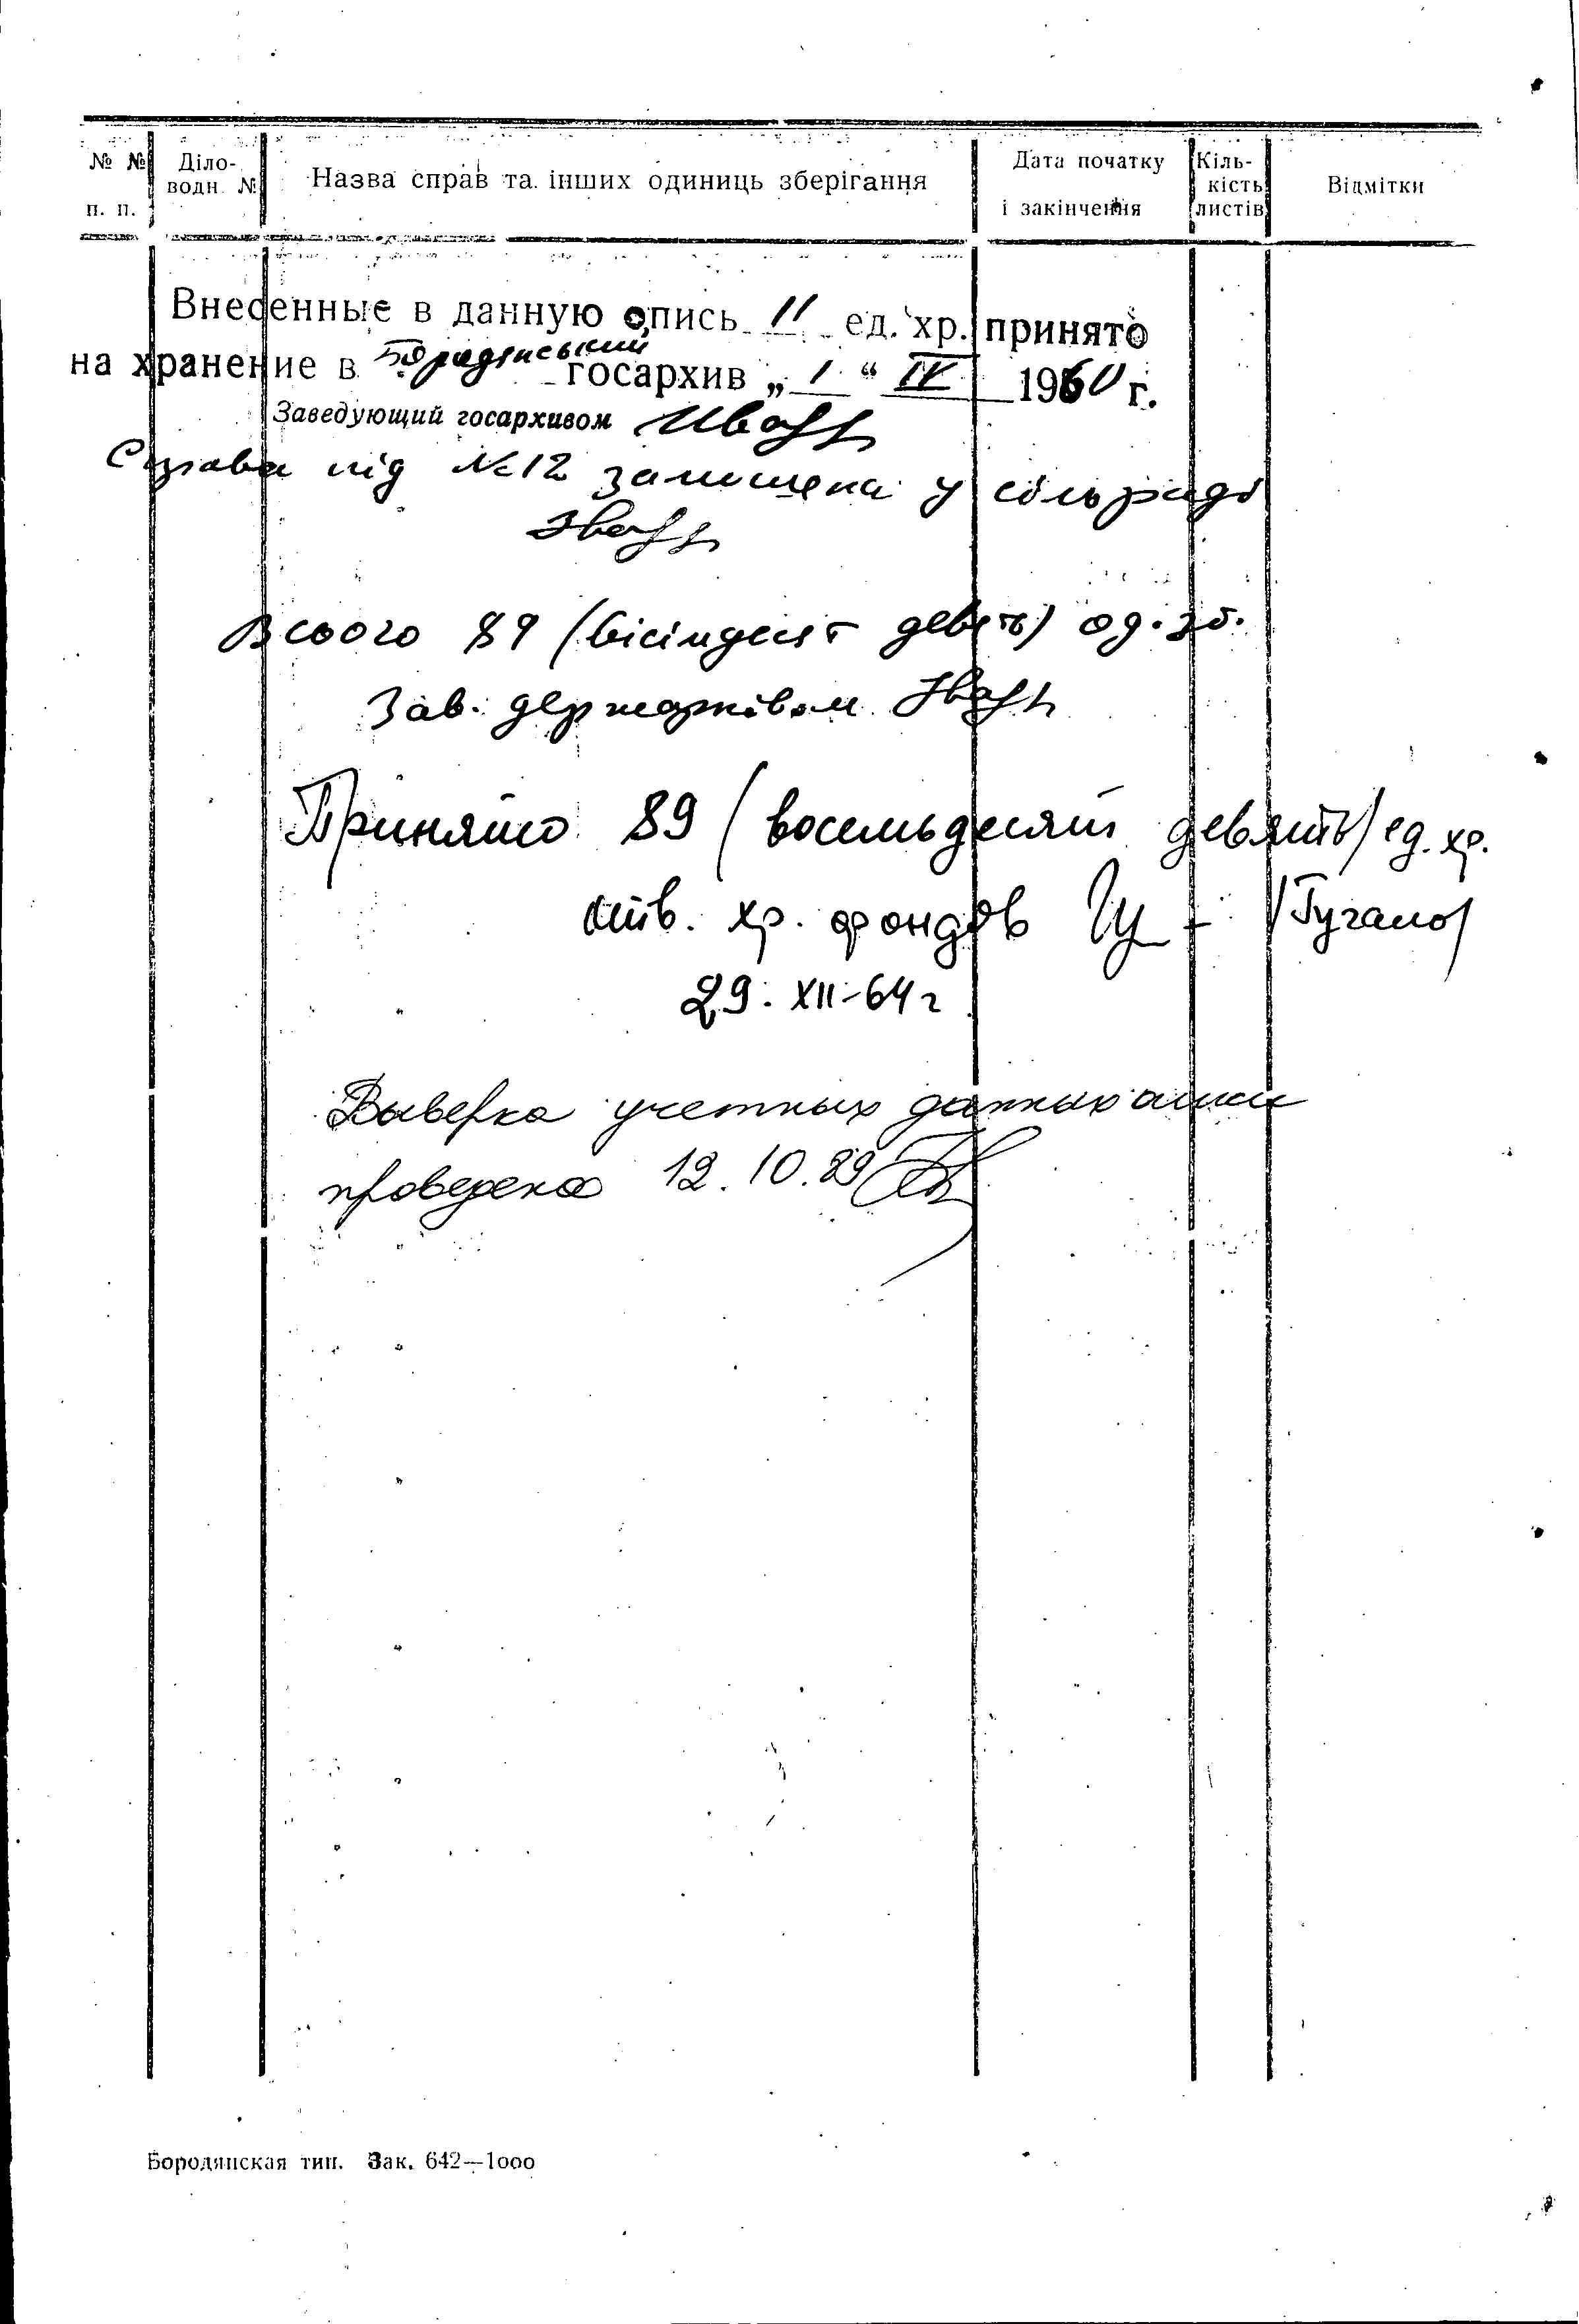 № № п. п. Діло-водн. № Назва справ та інших одиниць зберігання Дата початку і закінчення Кіль-кість листів Відмітки
Внесенные в данную опись 11 ед. хр. принято
на хранение в Бородянський госархив „ 1 “ IV 1960 г.
Заведующий госархивом
Справа під №12 залишена у сільраді
Всього 89 (вісімдесят девять) од. зб.
Зав. держархівом
Принято 89 (восемьдесят девять) ед. хр.
хр. фондов
29. XII-64 г
Выверка учетных данных описи
проведена 12.10.89
Бородянская тип. Зак. 642—1000